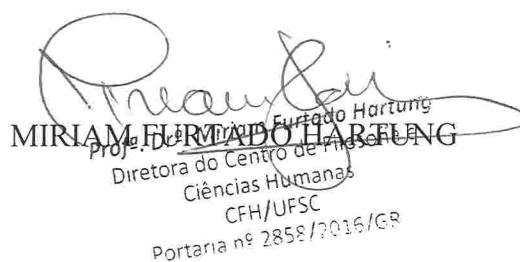 MIRIAM FURTADO HARTUNG
Profª. Drª Miriam Furtado Hartung
Diretora do Centro de Filosofia e
Ciências Humanas
CFH/UFSC
Portaria nº 2858/2016/GR